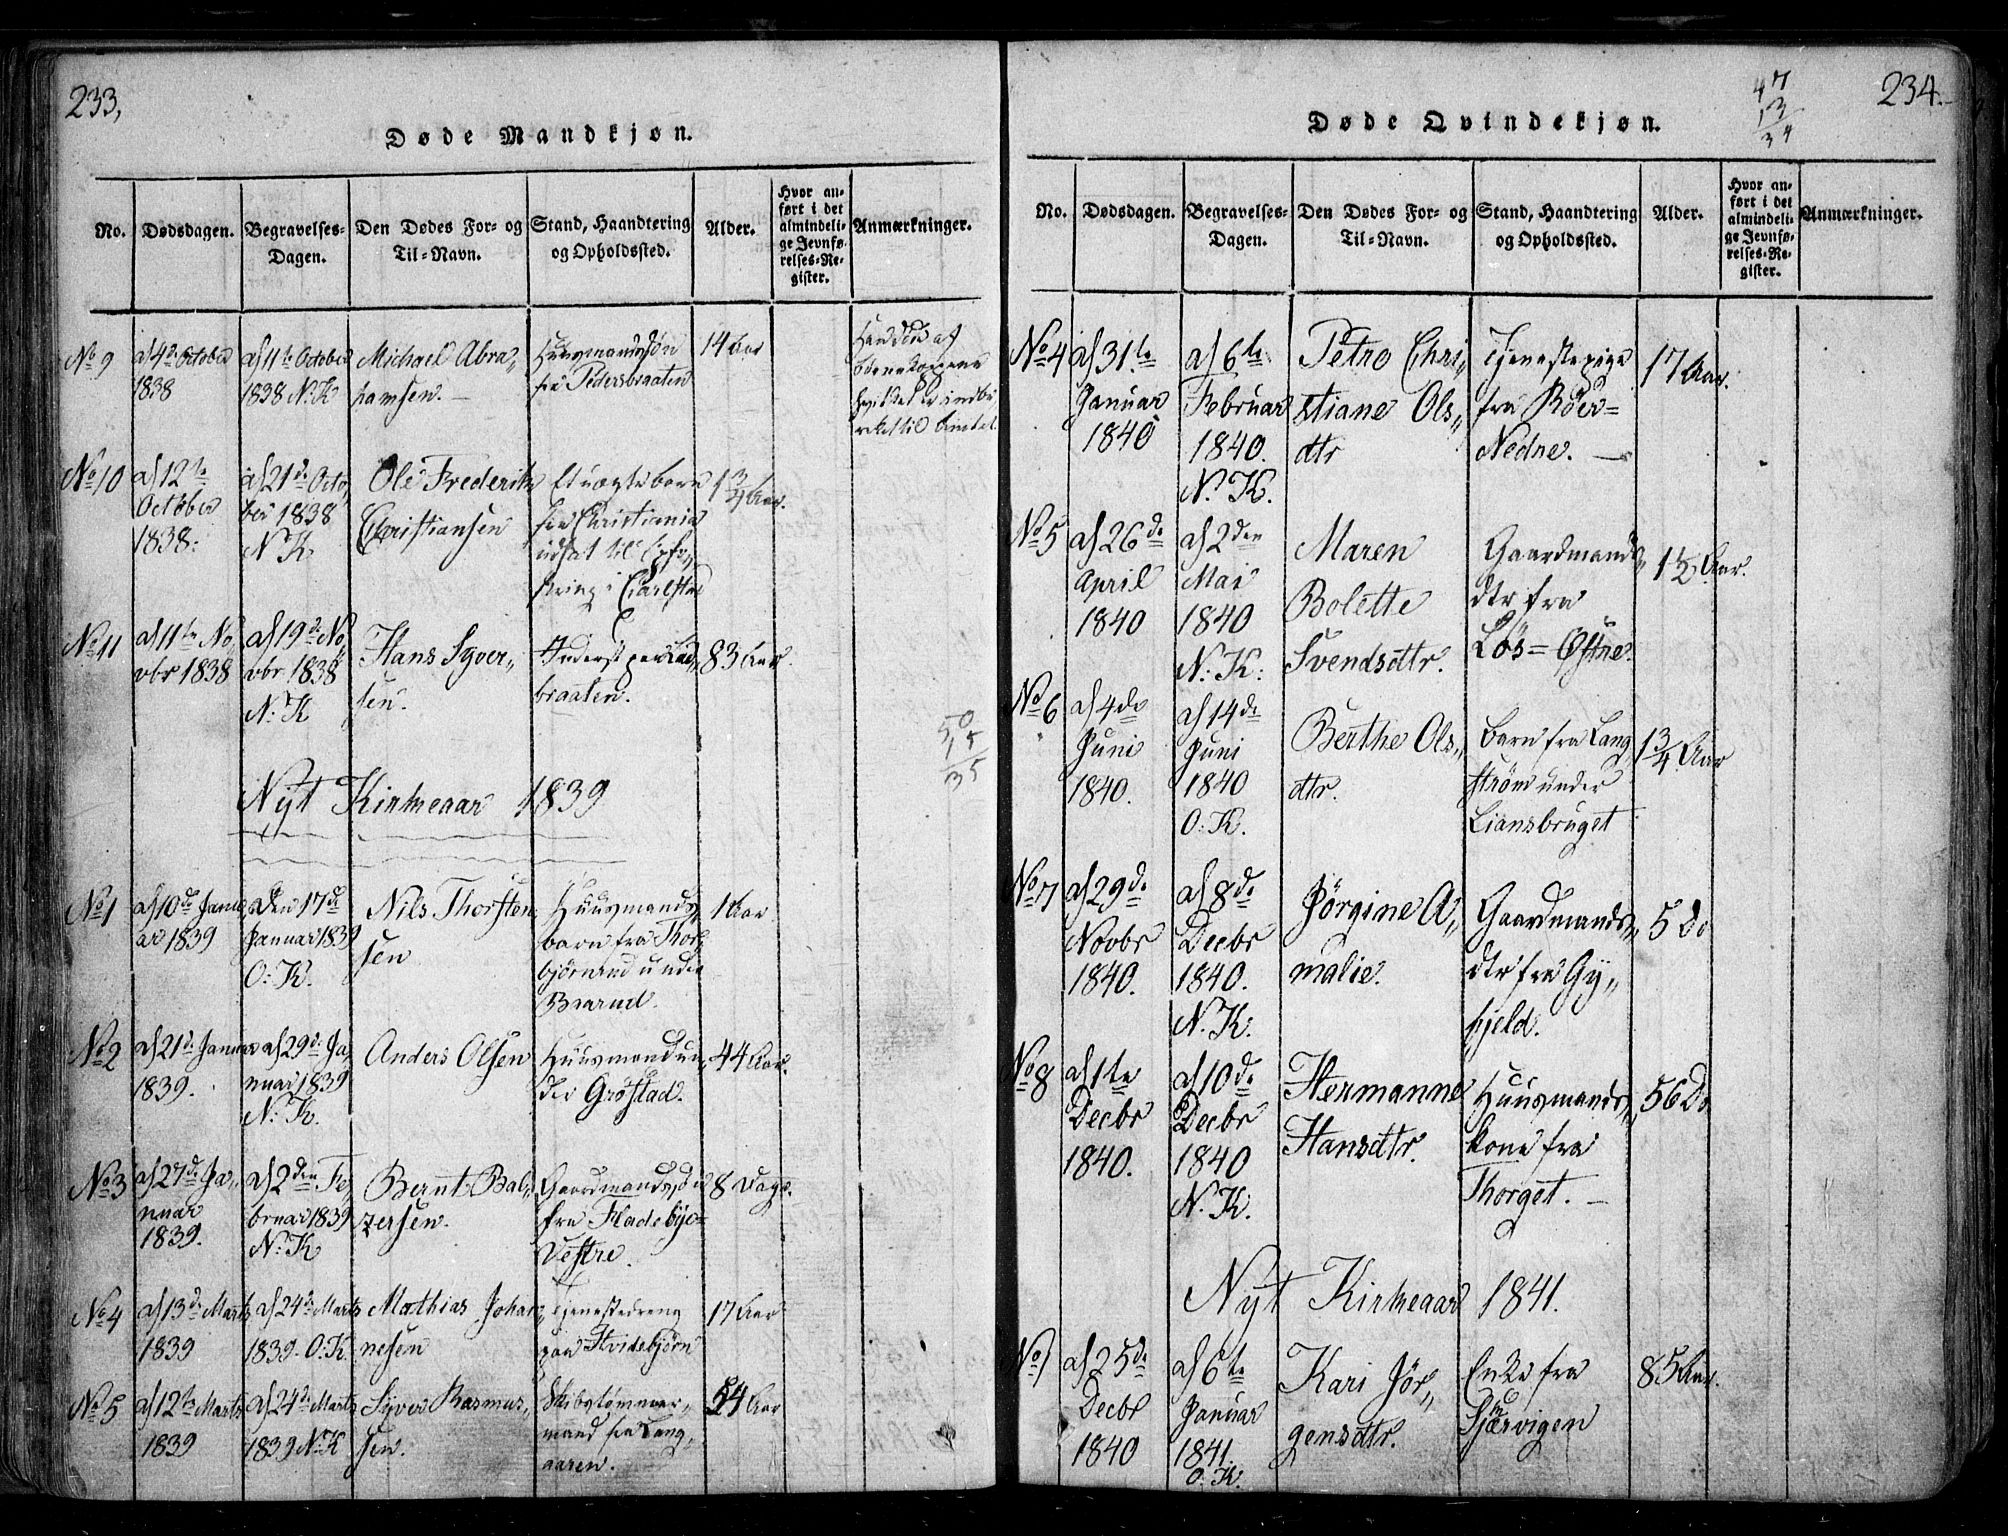 233,
Døde Mandkjøn.
No.
Dødsdagen.
Begravelses-
Dagen.
Den Dødes For- og
Til-Navn.
Stand, Haandtering
og Opholdssted.
Alder.
Hvor an-
ført i det
almindeli-
ge Jevnfø-
relses-Re-
gister.
Anmærkninger.
No 9
d 4de October
1838
d 11te October
1838 N. K
Michael Abra„
hamsen. —
Huusmandssøn
fra Pedersbraaten
14 Aar
Han døde af
No 10
d 12te
October
1838.
d 21de Octo„
ber 1838
N. K.
Ole Frederik
Christiansen
Et uægte barn
fra Christiania
udsat til Opfo„
string i Carlstad
1 3/4 Aar.
No 11
d 11te No„
vbr 1838
d 19de No„
vbr 1838
N: K
Hans Syver„
sen.
Inderst paa
braaten.
83 Aar.
50
15
35
Nyt Kirkeaar 1839
No 1
d 10de Janu„
ar 1839
den 17de
Januar 1839
O: K.
Nils Thorsten„
sen
Huusmands„
barn fra Thor„
bjørnrud under
Brarud.
1 Aar
No 2
d 21de Januar
1839.
d 29de Ja„
nuar 1839
N. K.
Anders Olsen
Huusmand un„
der Grøstad.
44 Aar.
No 3
d 27de Ja„
nuar
1839.
d 2den Fe„
bruar 1839
N: K
Bernt Bal„
zersen.
Gaardmands
fra Fladebye=
Vestre.
8 Dage.
No 4
d 13de Marts
1839
d 24de Marts
1839. O: K.
Mathias Johan„
nesen
Tjenestedreng
paa Hvidebjørn
17 Aar
No 5
d 12te Marts
1839
d 24de Marts
1839 N. K
Syver Rasmus„
sen.
Skibstømmer„
mand fra Lang„
aaren.
54 Aar
234.
47
13
34
Døde Qvindekjøn.
No.
Dødsdagen.
Begravelses-
Dagen.
Den Dødes For- og
Til-Navn.
Stand, Haandtering
og Opholdssted.
Alder.
Hvor an-
ført i det
almindeli-
ge Jevnfø-
relses-Re-
gister.
Anmærkninger.
No 4
d 31te
Januar
1840
d 6te
Februar
1840.
N. K.
Petro Chri„
stiane Ols„
dtr
Tjenestepige
fra Röer=
Nedre. —
17 Aar.
No 5
d 26de
April
1840
d 2den
Mai
1840
N: K:
Maren
Bolette
Svendsdtr.
Gaardmands„
dtr fra
Lös= Østre.
1 1/2 Aar.
No 6
d 4de
Juni
1840.
d 14de
Juni
1840
O: K.
Berthe Ols„
dtr.
Barn fra Lang„
ström under
Liansbruget
1 3/4 Aar
No 7
d 29de
Novbr
1840.
d 8de
Decbr
1840.
N. K.
Jörgine A„
malie.
Gaardmands„
dtr fra Gy„
fjeld.
5 Do
No 8
d 1te
Decbr
1840.
d 10de
Decbr
1840
N. K.
Hermanne
Hansdtr.
Huusmands„
kone fra
Thorget. —
56 Do
Nyt Kirkeaar 1841.
No 1
d 25de
Decbr
1840
d 6te
Januar
1841.
O: K.
Kari Jör„
gensdtr.
Enke fra
Sjærvigen
85 Aar.